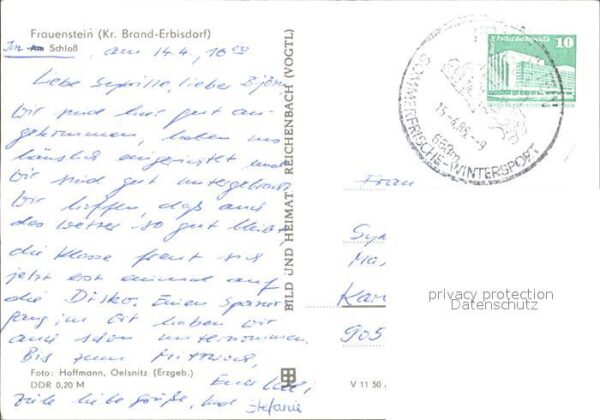 Frauenstein (Kr. Brand-Erbisdorf)
Im Am Schloß, am 14.4., 16 00
Liebe Sybille, lieber Björn
Wir sind hier gut an-
gekommen, haben uns
häuslich eingerichtet und
wir sind gut untergebracht
Wir hoffen, daß auch
das Wetter so gut bleibt
die Klasse freut sich
jetzt erst einmal auf
die Disko. Einen Spazier
gang im Ort haben wir
auch schon unternommen.
Bis zum Mittwoch,
Foto: Hoffmann, Oelsnitz (Erzgeb.)
Eure
DDR 0,20 M
Viele liebe Grüße, Stefanie
BILD UND HEIMAT REICHENBACH (VOGTL)
V 11 50
Palast der Republik
10
15.-4.86.-9
660m
SOMMERFRISCHE-WINTERSPORT
Frau
Sy
Ma
Kar
905
privacy protection
Datenschutz